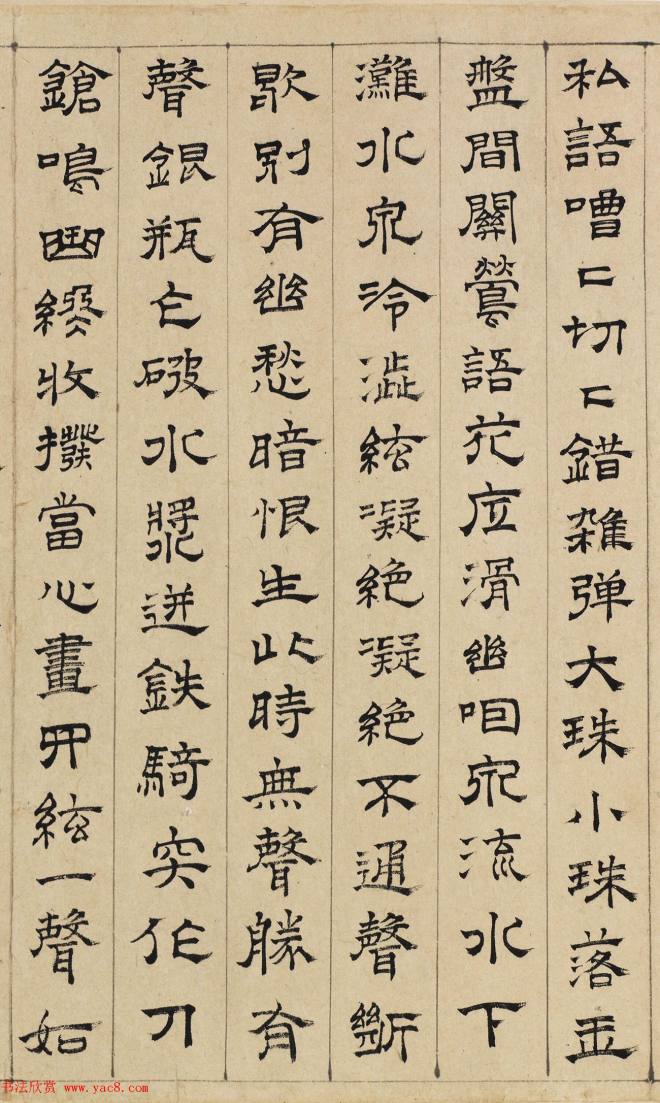 私語嘈〻切〻錯雜弹大珠小珠落玉
盤間關鶯語花底滑幽咽泉流水下
灘水泉冷澁絃凝絶凝絶不通聲斷
歇別有幽愁暗恨生此時無聲勝有
聲銀瓶乍破水漿迸鉄騎突作刀
鎗鳴曲終收撥當心畫四絃一聲如
书法欣赏 www.yac8.com